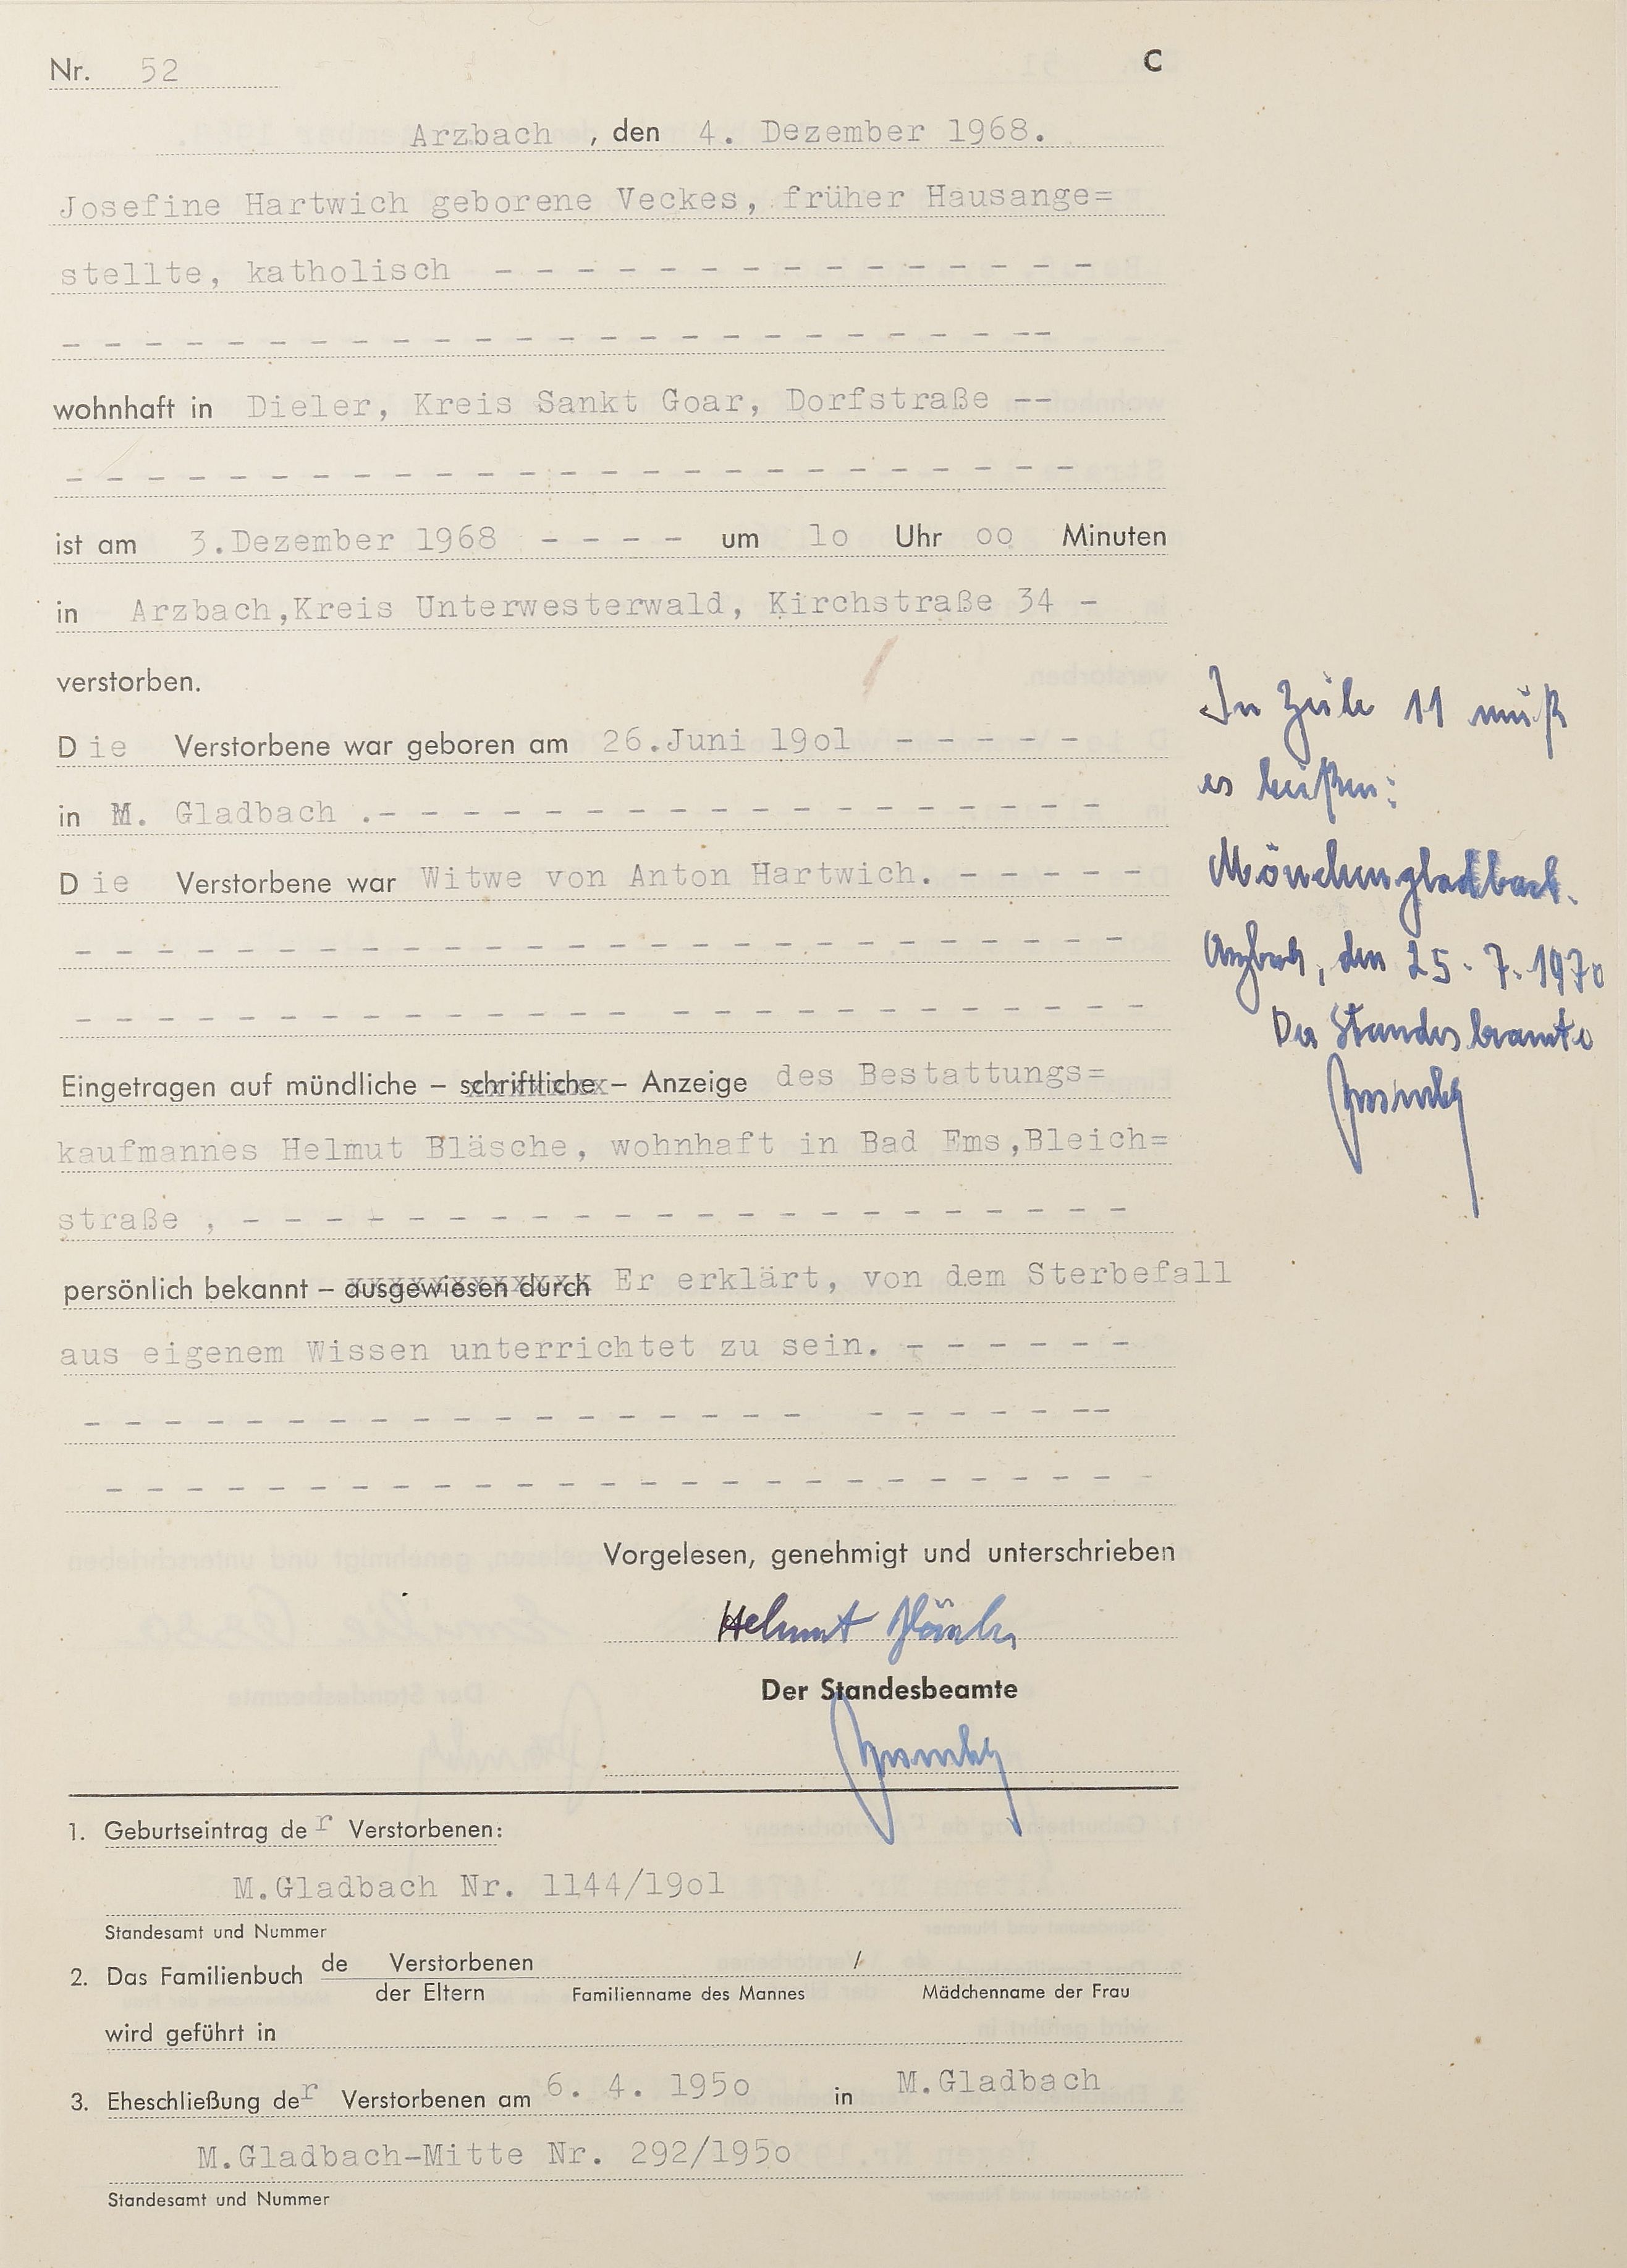 Nr. 52
C
Arzbach , den 4. Dezember 1968.
Josefine Hartwich geborene Veckes, früher Hausange=
stellte, katholisch - - - - - - - - - - - - - - -
- - - - - - - - - - - - - - - - - - - - - - - --
wohnhaft in Dieler, Kreis Sankt Goar, Dorfstraße --
- - - - - - - - - - - - - - - - - - - - - - - - -
ist am 3.Dezember 1968 - - - - um lo Uhr oo Minuten
in Arzbach,Kreis Unterwesterwald, Kirchstraße 34 -
verstorben.
Die Verstorbene war geboren am 26.Juni 19ol - - - - -
in M. Gladbach .- - - - - - - - - - - - - - - - - -
Die Verstorbene war Witwe von Anton Hartwich. - - - - -
- - - - - - - - - - - - - - - - - - - - - - - - - -
- - - - - - - - - - - - - - - - - - - - - - - - - -
Eingetragen auf mündliche – schriftliche – Anzeige des Bestattungs=
kaufmannes Helmut Bläsche, wohnhaft in Bad Ems,Bleich=
straße , - - - - - - - - - - - - - - - - - - - - - -
persönlich bekannt – ausgewiesen durch Er erklärt, von dem Sterbefall
aus eigenem Wissen unterrichtet zu sein. - - - - - -
- - - - - - - - - - - - - - - - - - - - - - - - --
- - - - - - - - - - - - - - - - - - - - - - - - - -
Vorgelesen, genehmigt und unterschrieben
Helmut Bläsche
Der Standesbeamte
In Zeile 11 muß
es heißen:
Mönchengladbach.
Arzbach, den 25.7.1970
Der Standesbeamte
1. Geburtseintrag der Verstorbenen:
M.Gladbach Nr. 1144/19ol
Standesamt und Nummer
2. Das Familienbuch de Verstorbenen /
der Eltern Familienname des Mannes Mädchenname der Frau
wird geführt in
3. Eheschließung der Verstorbenen am 6. 4. 195o in M.Gladbach
M.Gladbach-Mitte Nr. 292/195o
Standesamt und Nummer